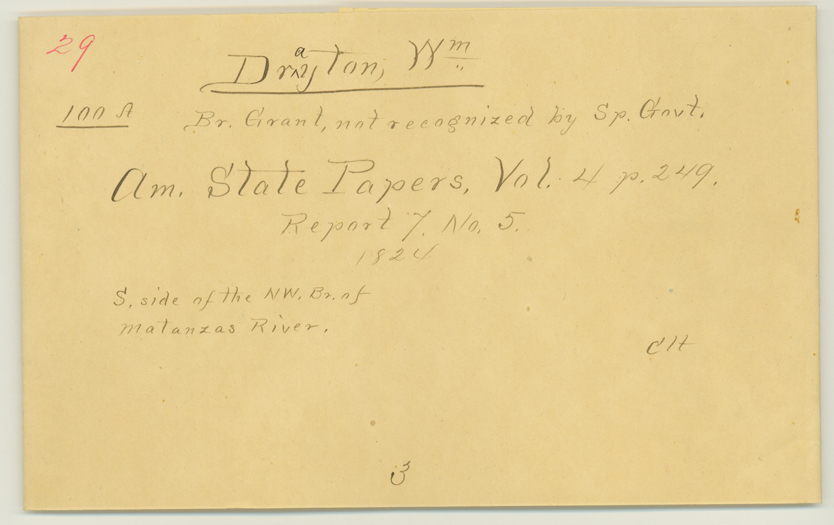 29
Drayton, Wm
100 A
Br. Grant, not recognized by Sp. Govt.
Am. State Papers, Vol. 4 p. 249.
Report 7. No. 5.
1824
S. side of the NW. Br. of
Matanzas River.
CH
3